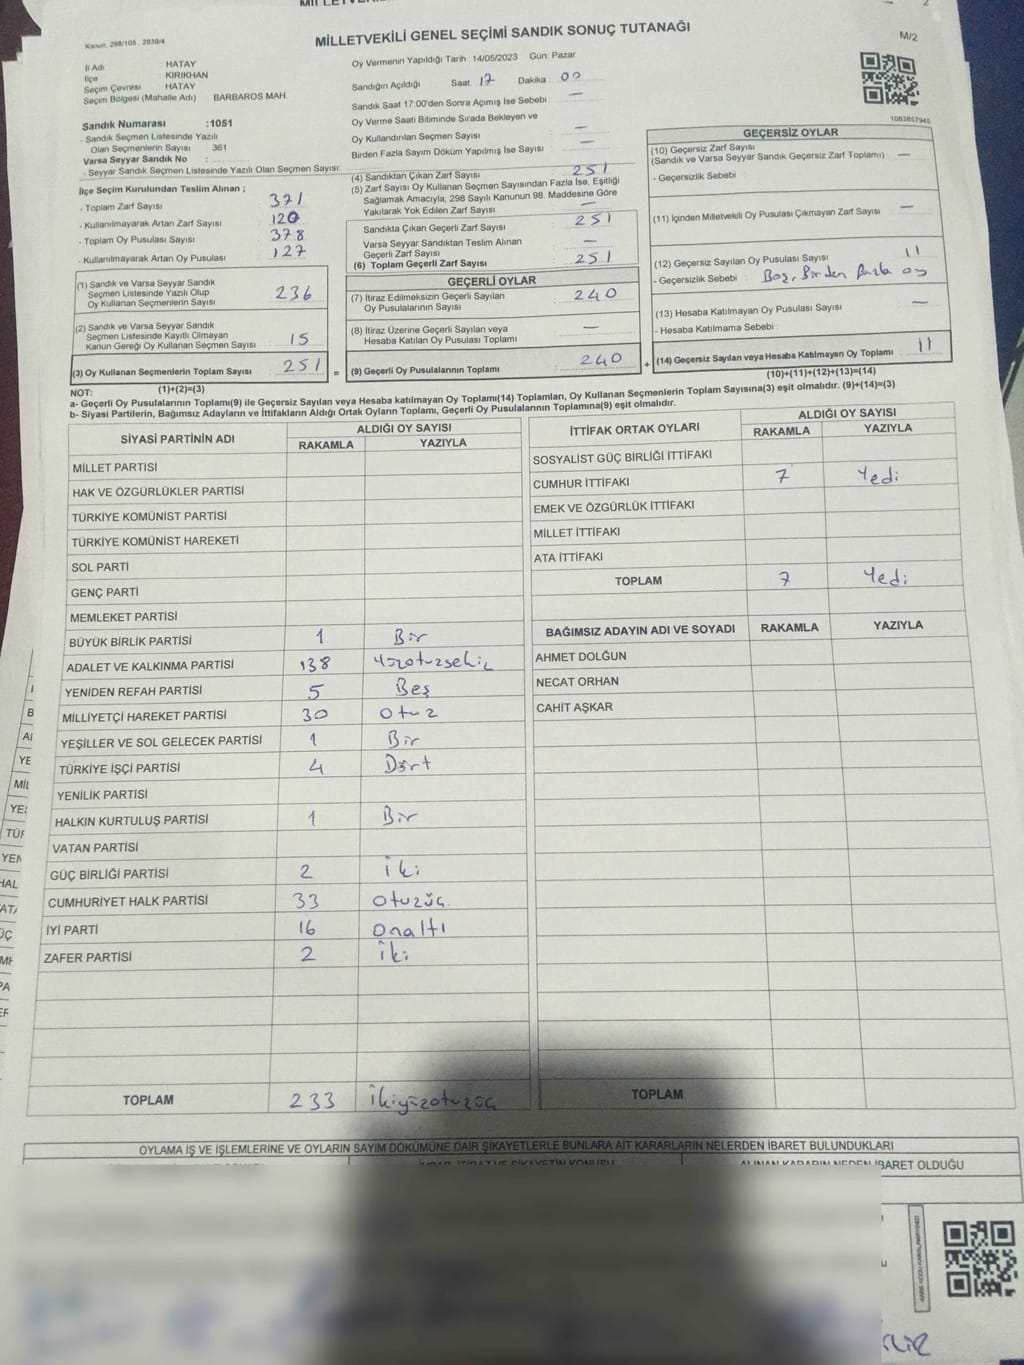 MİLLETVEKİLİ GENEL SEÇİMİ SANDIK SONUÇ TUTANAĞI
M/2
Kanun: 298/105 , 2839/4
İl Adı HATAY
İlçe KIRIKHAN
Seçim Çevresi HATAY
Seçim Bölgesi (Mahalle Adı) BARBAROS MAH.
Sandık Numarası :1051
- Sandık Seçmen Listesinde Yazılı
Olan Seçmenlerin Sayısı 361
Varsa Seyyar Sandık No :
- Seyyar Sandık Seçmen Listesinde Yazılı Olan Seçmen Sayısı:
İlçe Seçim Kurulundan Teslim Alınan ;
- Toplam Zarf Sayısı 371
- Kullanılmayarak Artan Zarf Sayısı 120
- Toplam Oy Pusulası Sayısı 378
- Kullanılmayarak Artan Oy Pusulası 127
(1) Sandık ve Varsa Seyyar Sandık
Seçmen Listesinde Yazılı Olup
Oy Kullanan Seçmenlerin Sayısı 236
(2) Sandık ve Varsa Seyyar Sandık
Seçmen Listesinde Kayıtlı Olmayan
Kanun Gereği Oy Kullanan Seçmen Sayısı 15
(3) Oy Kullanan Seçmenlerin Toplam Sayısı 251 =
(1)+(2)=(3)
Oy Vermenin Yapıldığı Tarih 14/05/2023 Gün: Pazar
Sandığın Açıldığı Saat 17 Dakika : 00
Sandık Saat 17:00'den Sonra Açılmış İse Sebebi : —
Oy Verme Saati Bitiminde Sırada Bekleyen ve
Oy Kullandırılan Seçmen Sayısı —
Birden Fazla Sayım Döküm Yapılmış İse Sayısı —
(4) Sandıktan Çıkan Zarf Sayısı 251
(5) Zarf Sayısı Oy Kullanan Seçmen Sayısından Fazla İse, Eşitliği
Sağlamak Amacıyla, 298 Sayılı Kanunun 98. Maddesine Göre
Yakılarak Yok Edilen Zarf Sayısı —
Sandıkta Çıkan Geçerli Zarf Sayısı 251
Varsa Seyyar Sandıktan Teslim Alınan
Geçerli Zarf Sayısı —
(6) Toplam Geçerli Zarf Sayısı 251
GEÇERLİ OYLAR
(7) İtiraz Edilmeksizin Geçerli Sayılan
Oy Pusulalarının Sayısı 240
(8) İtiraz Üzerine Geçerli Sayılan veya
Hesaba Katılan Oy Pusulası Toplamı —
(9) Geçerli Oy Pusulalarının Toplamı 240 +
1083857945
GEÇERSİZ OYLAR
(10) Geçersiz Zarf Sayısı
(Sandık ve Varsa Seyyar Sandık Geçersiz Zarf Toplamı) —
- Geçersizlik Sebebi
(11) İçinden Milletvekili Oy Pusulası Çıkmayan Zarf Sayısı —
(12) Geçersiz Sayılan Oy Pusulası Sayısı 11
- Geçersizlik Sebebi : Boş, Birden fazla oy
(13) Hesaba Katılmayan Oy Pusulası Sayısı —
- Hesaba Katılmama Sebebi :
(14) Geçersiz Sayılan veya Hesaba Katılmayan Oy Toplamı 11
(10)+(11)+(12)+(13)=(14)
NOT:
a- Geçerli Oy Pusulalarının Toplamı(9) ile Geçersiz Sayılan veya Hesaba katılmayan Oy Toplamı(14) Toplamları, Oy Kullanan Seçmenlerin Toplam Sayısına(3) eşit olmalıdır. (9)+(14)=(3)
b- Siyasi Partilerin, Bağımsız Adayların ve İttifakların Aldığı Ortak Oyların Toplamı, Geçerli Oy Pusulalarının Toplamına(9) eşit olmalıdır.
SİYASİ PARTİNİN ADI ALDIĞI OY SAYISI
RAKAMLA YAZIYLA
MİLLET PARTİSİ
HAK VE ÖZGÜRLÜKLER PARTİSİ
TÜRKİYE KOMÜNİST PARTİSİ
TÜRKİYE KOMÜNİST HAREKETİ
SOL PARTİ
GENÇ PARTİ
MEMLEKET PARTİSİ
BÜYÜK BİRLİK PARTİSİ 1 Bir
ADALET VE KALKINMA PARTİSİ 138 Yüzotuzsekiz
YENİDEN REFAH PARTİSİ 5 Beş
MİLLİYETÇİ HAREKET PARTİSİ 30 Otuz
YEŞİLLER VE SOL GELECEK PARTİSİ 1 Bir
TÜRKİYE İŞÇİ PARTİSİ 4 Dört
YENİLİK PARTİSİ
HALKIN KURTULUŞ PARTİSİ 1 Bir
VATAN PARTİSİ
GÜÇ BİRLİĞİ PARTİSİ 2 İki
CUMHURİYET HALK PARTİSİ 33 Otuzüç
İYİ PARTİ 16 Onaltı
ZAFER PARTİSİ 2 İki
TOPLAM 233 İkiyüzotuzüç
İTTİFAK ORTAK OYLARI ALDIĞI OY SAYISI
RAKAMLA YAZIYLA
SOSYALİST GÜÇ BİRLİĞİ İTTİFAKI
CUMHUR İTTİFAKI 7 Yedi
EMEK VE ÖZGÜRLÜK İTTİFAKI
MİLLET İTTİFAKI
ATA İTTİFAKI
TOPLAM 7 Yedi
BAĞIMSIZ ADAYIN ADI VE SOYADI RAKAMLA YAZIYLA
AHMET DOLĞUN
NECAT ORHAN
CAHİT AŞKAR
TOPLAM
OYLAMA İŞ VE İŞLEMLERİNE VE OYLARIN SAYIM DÖKÜMÜNE DAİR ŞİKAYETLERLE BUNLARA AİT KARARLARIN NELERDEN İBARET BULUNDUKLARI
ALINAN KARARIN NEDEN İBARET OLDUĞU